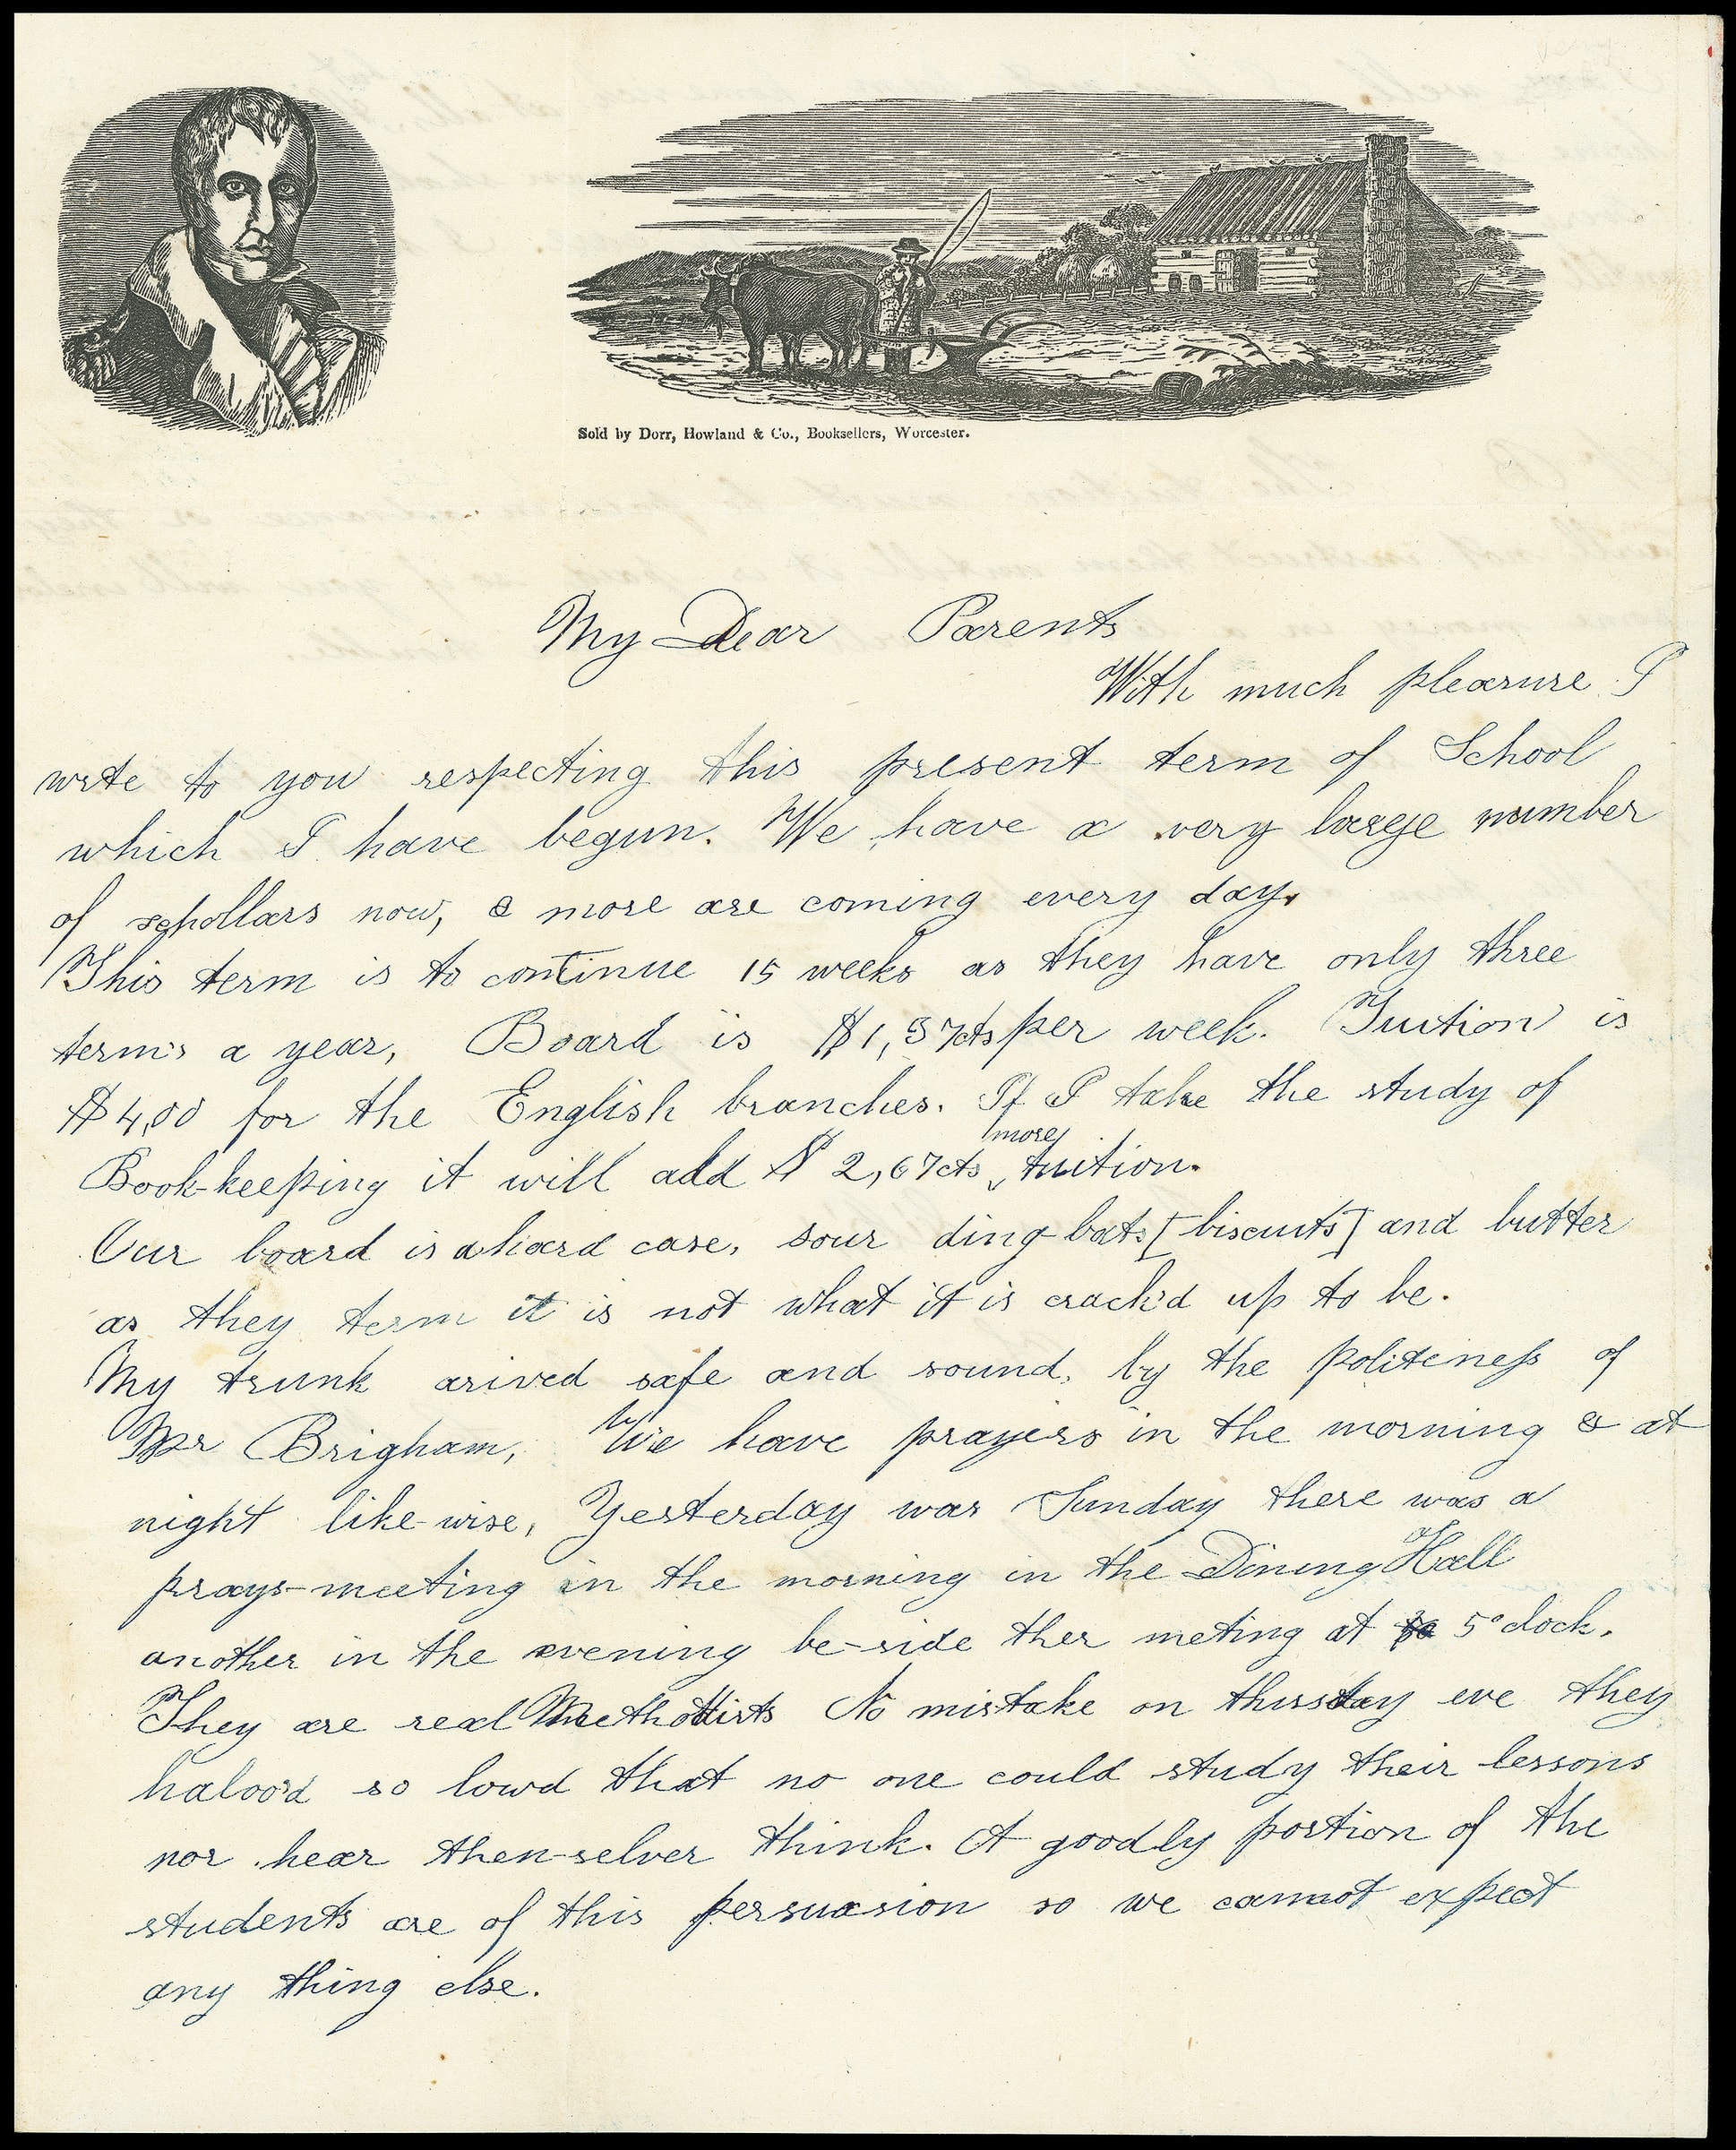 Sold by Dorr, Howland & Co., Booksellers, Worcester.
My Dear Parents
With much pleasure I
write to you respecting this present term of School
which I have begun. We have a very large number
of schollars now, & more are coming every day.
This term is to continue 15 weeks as they have only three
term's a year, Board is $1,37cts per week. Tuition is
$4,00 for the English branches. If I take the study of
more
Book-keeping it will add $ 2,67cts tuition.
Our board is a hard case, sour ding-bats [biscuits] and butter
as they term it is not what it is crack'd up to be.
My trunk arived safe and sound, by the politeness of
Mr Brigham, We have prayers in the morning & at
night like-wise, Yesterday was Sunday there was a
prayr-meeting in the morning in the Dining Hall
another in the evening be-side ther meting at 5 o'clock.
They are real Methodists No mistake on thursday eve they
haloo'd so lowd that no one could study their lessons
nor hear then-selves think. A goodly portion of the
students are of this persuasion so we cannot expect
any thing else.